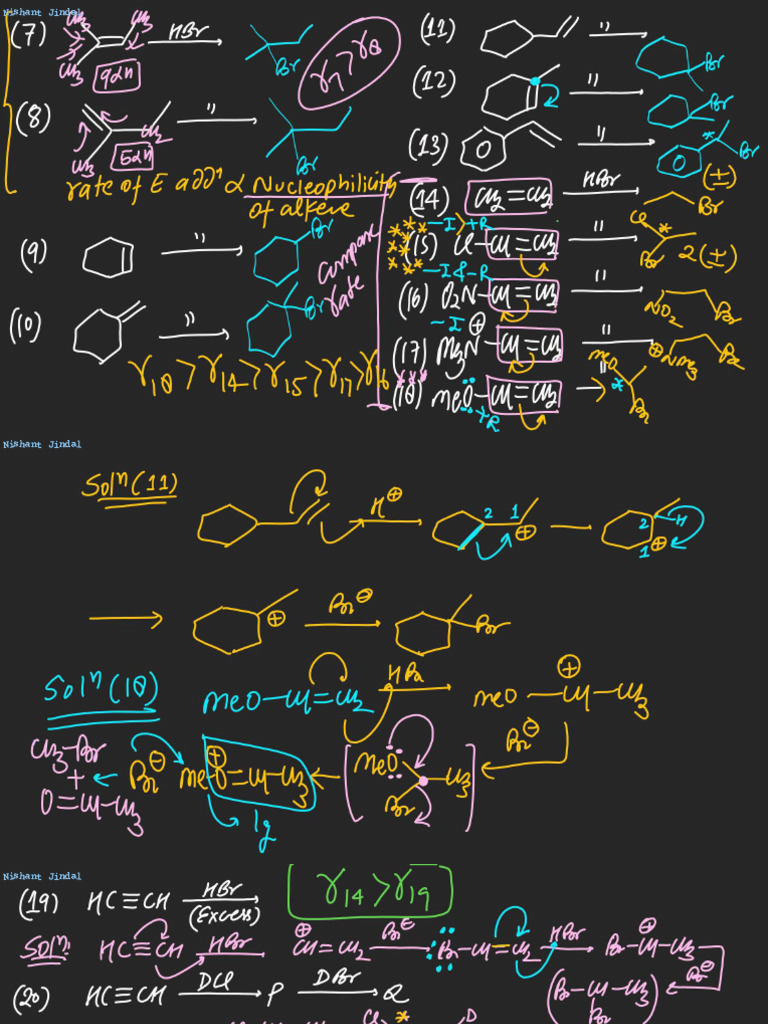 Nishant Jindal
(7) CH3 CH3 CH3 HBr Br r7 > r8
9αH
(8) CH3 CH2 " Br
5αH
rate of E addn α Nucleophilicity of alkene
(9) " Br
(10) " Br
compare rate
r18 > r14 > r15 > r17 > r16
(11) " Br
(12) " Br
(13) " * Br (±)
(14) CH2=CH2 HBr Br
-I > +R
(15) Cl-CH=CH2 " Cl * Br 2(±)
-I & -R
(16) O2N-CH=CH2 " NO2 Br
-I ⊕
(17) Me3N-CH=CH2 " ⊕NMe3 Br
(18) MeO-CH=CH2 " MeO * Br
+R
Nishant Jindal
Soln (11)
H⊕ 2 1 ⊕ 2 H 1 ⊕
⊕ Br⊖ Br
Soln (18) MeO-CH=CH2 HBr MeO-CH-CH3 ⊕
Br⊖
CH3-Br + O=CH-CH3 Br⊖ MeO=CH-CH3 ⊕ [MeO CH3 Br]
Nishant Jindal
(19) HC≡CH HBr (Excess) r14 > r19
Soln: HC≡CH HBr ⊕ CH=CH2 Br⊖ Br-CH=CH2 HBr Br-CH-CH3 ⊕
Br⊖
(20) HC≡CH DCl P DBr Q (Br-CH-CH3 Br)
Cl * D